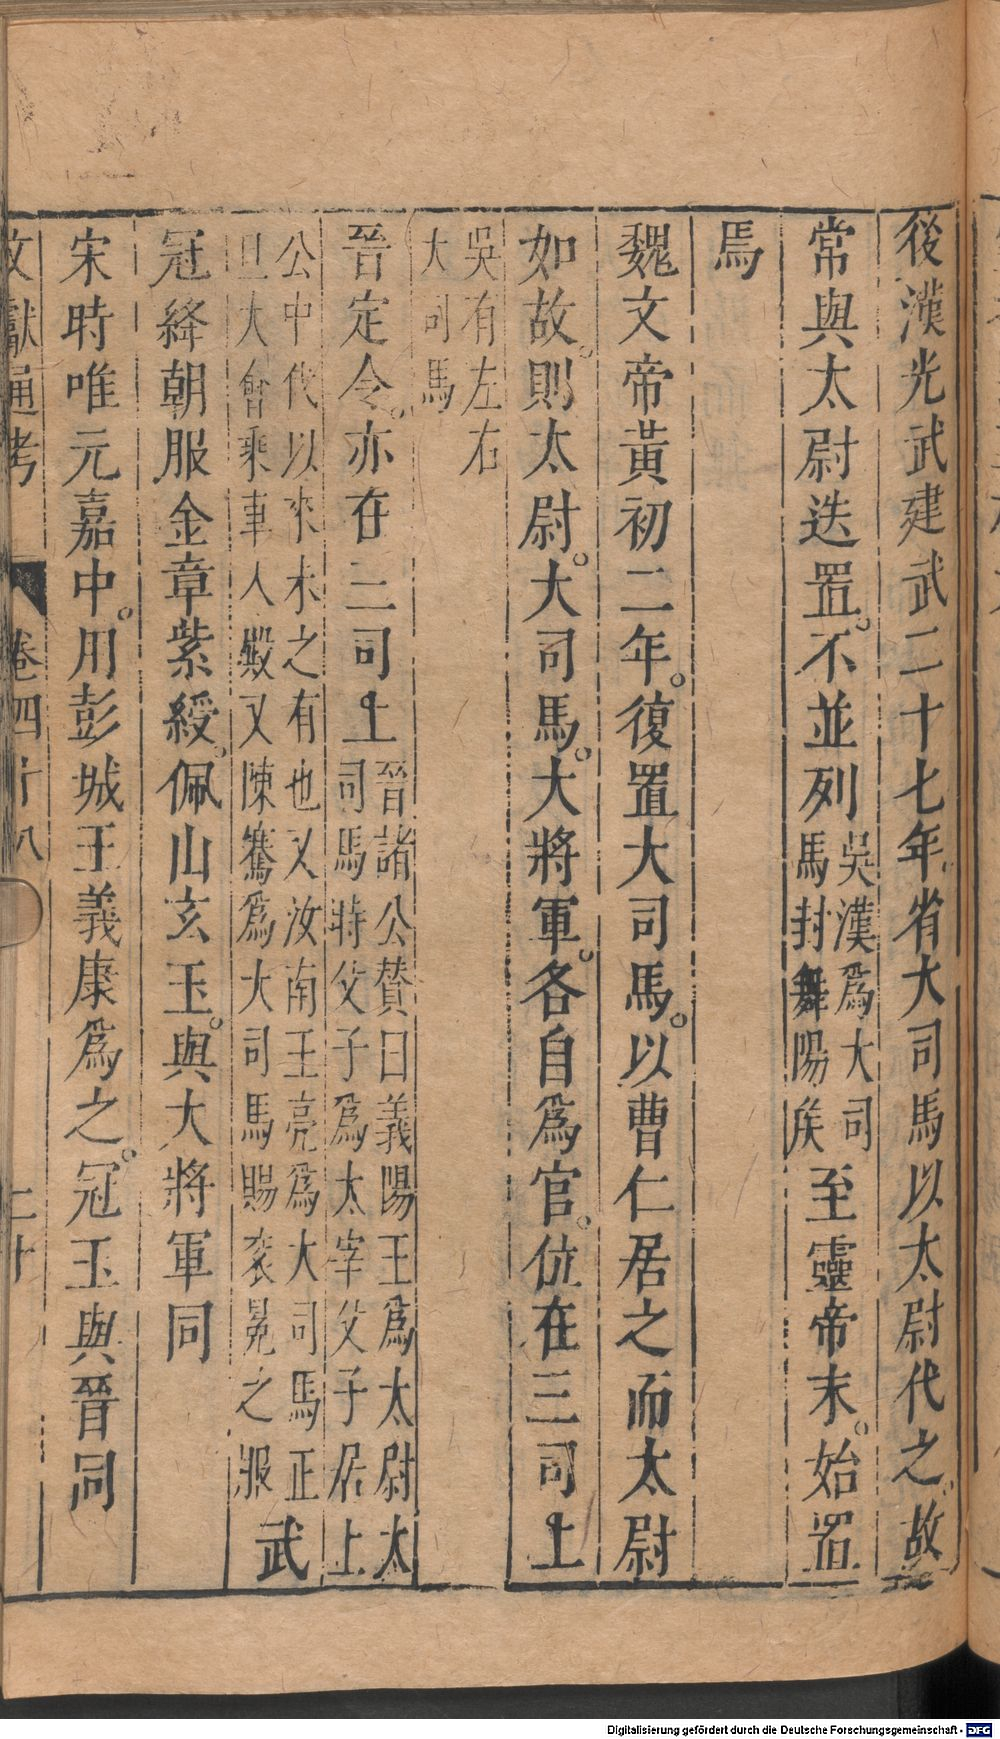 後漢光武建武二十七年省大司馬以太尉代之。故
常與太尉迭置。不並列吳漢爲大司馬封舞陽矦至靈帝末。始置
馬
魏文帝黃初二年。復置大司馬。以曹仁居之而太尉
如故。則太尉。大司馬。大將軍。各自爲官。位在三司上
吳有左右大司馬
晉定令。亦在三司上晉諸公贊曰義陽王爲太尉太司馬特父子爲太宰父子居上
公中代以來未之有也又汝南王亮爲大司馬正旦大會乘車入殿又陳騫爲大司馬賜衮冕之服武
冠絳朝服金章紫綬。佩山玄玉。與大將軍同
宋時唯元嘉中。用彭城王義康爲之。冠玉與晉同
文獻通考 卷四十八 二十
Digitalisierung gefördert durch die Deutsche Forschungsgemeinschaft - DFG